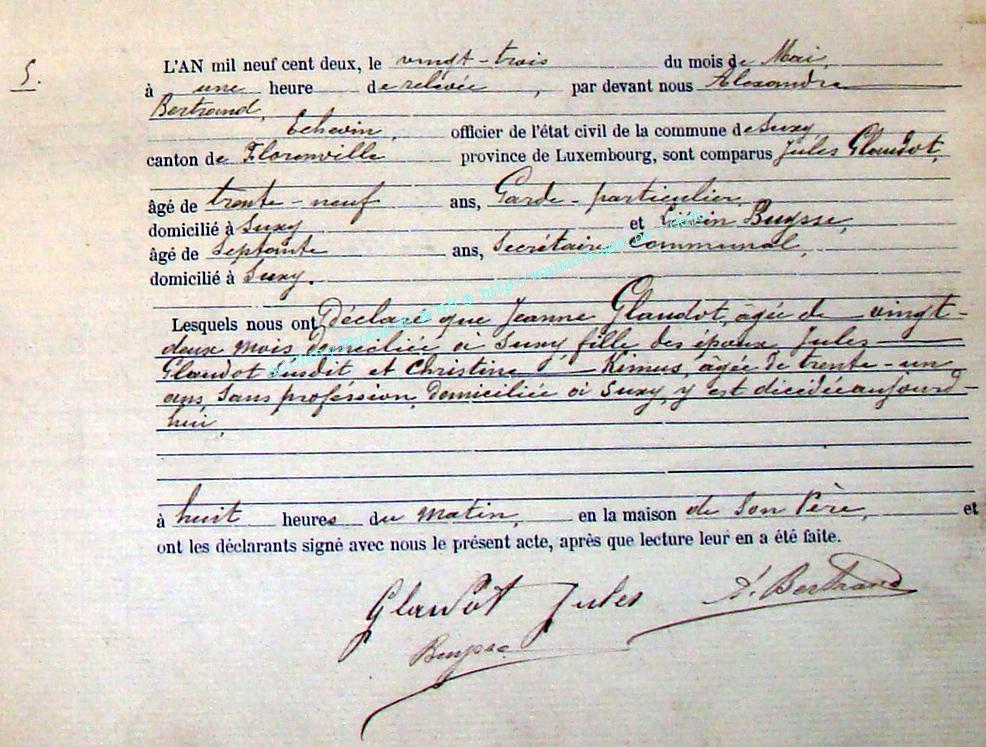 5.
L'AN mil neuf cent deux, le vingt-trois du mois de Mai,
à une heure de relevée, par devant nous Alexandre
Bertrand,
Echevin, officier de l'état civil de la commune de Suxy
canton de Florenville province de Luxembourg, sont comparus Jules Glaudot,
âgé de trente-neuf ans, Garde-particulier,
domicilié à Suxy et Liévin Buysse,
âgé de Septante ans, Secrétaire Communal,
domicilié à Suxy.
Lesquels nous ont déclaré que Jeanne Glaudot, âgée de vingt-
deux mois, domiciliée à Suxy, fille des époux Jules
Glaudot susdit et Christine Kimus, âgée de trente-un
ans, Sans profession, domiciliée à Suxy, y est décédée aujourd-
hui,
à huit heures du matin, en la maison de Son Père, et
ont les déclarants signé avec nous le présent acte, après que lecture leur en a été faite.
Glaudot Jules A. Bertrand
Buysse